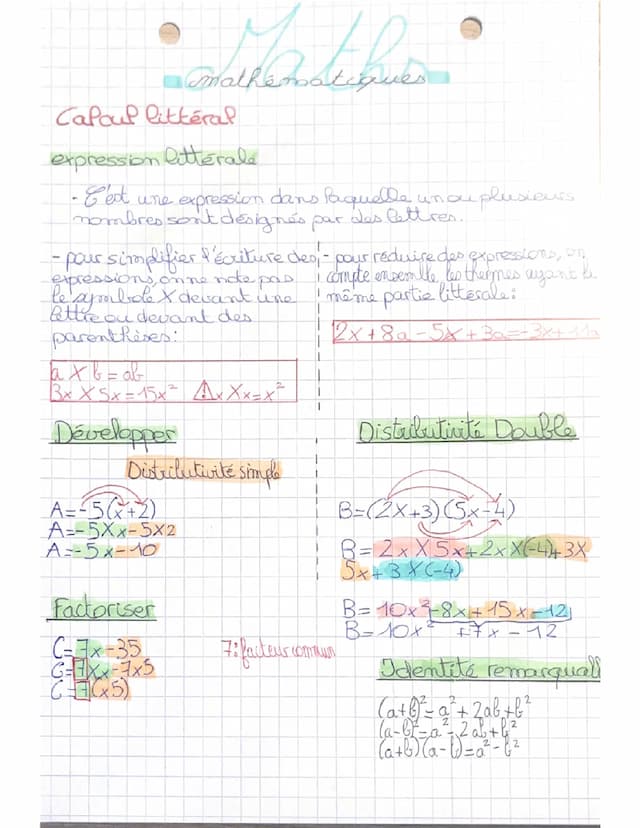 Maths
mathématiques
Calcul littéral
expression littérale
- C'est une expression dans laquelle un ou plusieurs
nombres sont désignés par des lettres.
- pour simplifier l'écriture des
expressions, on ne note pas
le symbole X devant une
lettre ou devant des
parenthèses:
a X b = ab
3x X 5x = 15x² ⚠ x X x = x²
- pour réduire des expressions, on
compte ensemble les thermes ayant la
même partie littérale:
2x + 8a - 5x + 3a = -3x + 11a
Développer
Distributivité simple
A = -5(x+2)
A = -5Xx - 5X2
A = -5x - 10
Distributivité Double
B = (2x+3)(5x-4)
B = 2x X 5x + 2x X(-4) + 3X
5x + 3X(-4)
B = 10x² - 8x + 15x - 12
B = 10x² + 7x - 12
Factoriser
C = 7x - 35
C = 7Xx - 7x5
C = 7(x5)
7: facteur commun
Identité remarquabl
(a+b)² = a² + 2ab + b²
(a-b)² = a² - 2ab + b²
(a+b)(a-b) = a² - b²